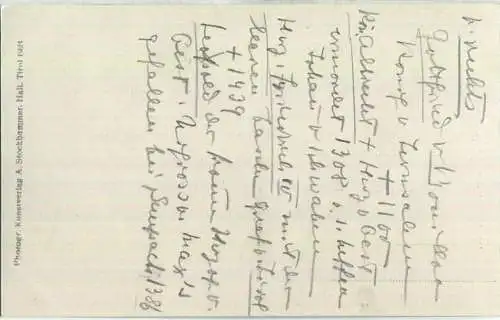 v. rechts
Gottfried v Bouillon
König v Jerusalem
† 1100
K. Albrecht † Herzg v Oest
ermordet 1308 v. s. Neffen
Johann v Schwaben
Herz. Friedrich IV mit der
leeren Tasche Graf v Tirol
† 1439
Leopold der fromme Herzog v.
Oest. Urgrossv. Max's
gefallen bei Sempach 1386
Photogr. Kunstverlag A. Stockhammer, Hall, Tirol